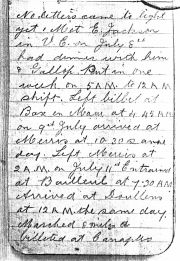 No letters came to light
yet. Met E. Jackson
in Y.C. on July 8th
had dinner with him
& Gallop. Put in one
week on 5 A.M. to 12 A.M
shift. Left billet at
at 4.45 A.M
on 9th July arrived at
at 10.30 same
day. Left at
2 A.M. on July 11th Entrained
at Bailleul at 7.30 A.M
Arrived at Doullens
at 12 A.M. the same day
Marched &
billeted at